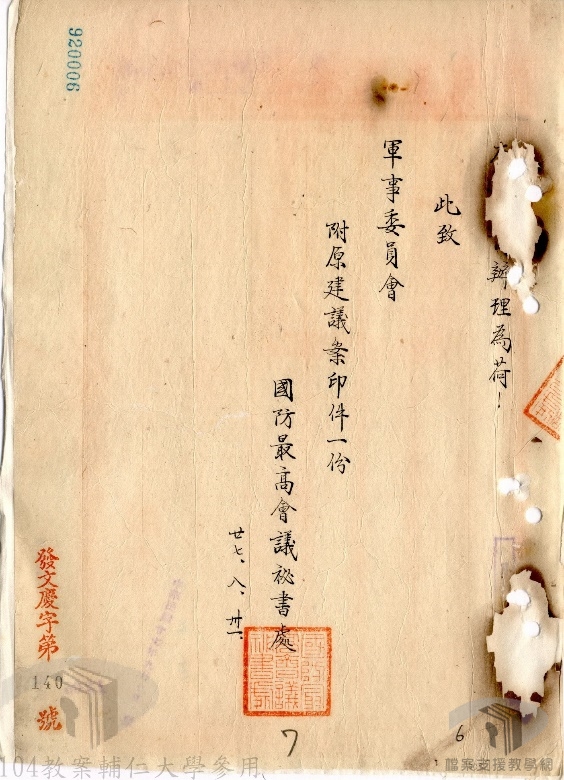 辦理為荷！
此致
軍事委員會
附原建議案印件一份
國防最高會議祕書處
廿七、八、卅一、
國防最高會議祕書處
發文慶字第
140
號
920006
7
6
104教案輔仁大學參用
檔案支援教學網